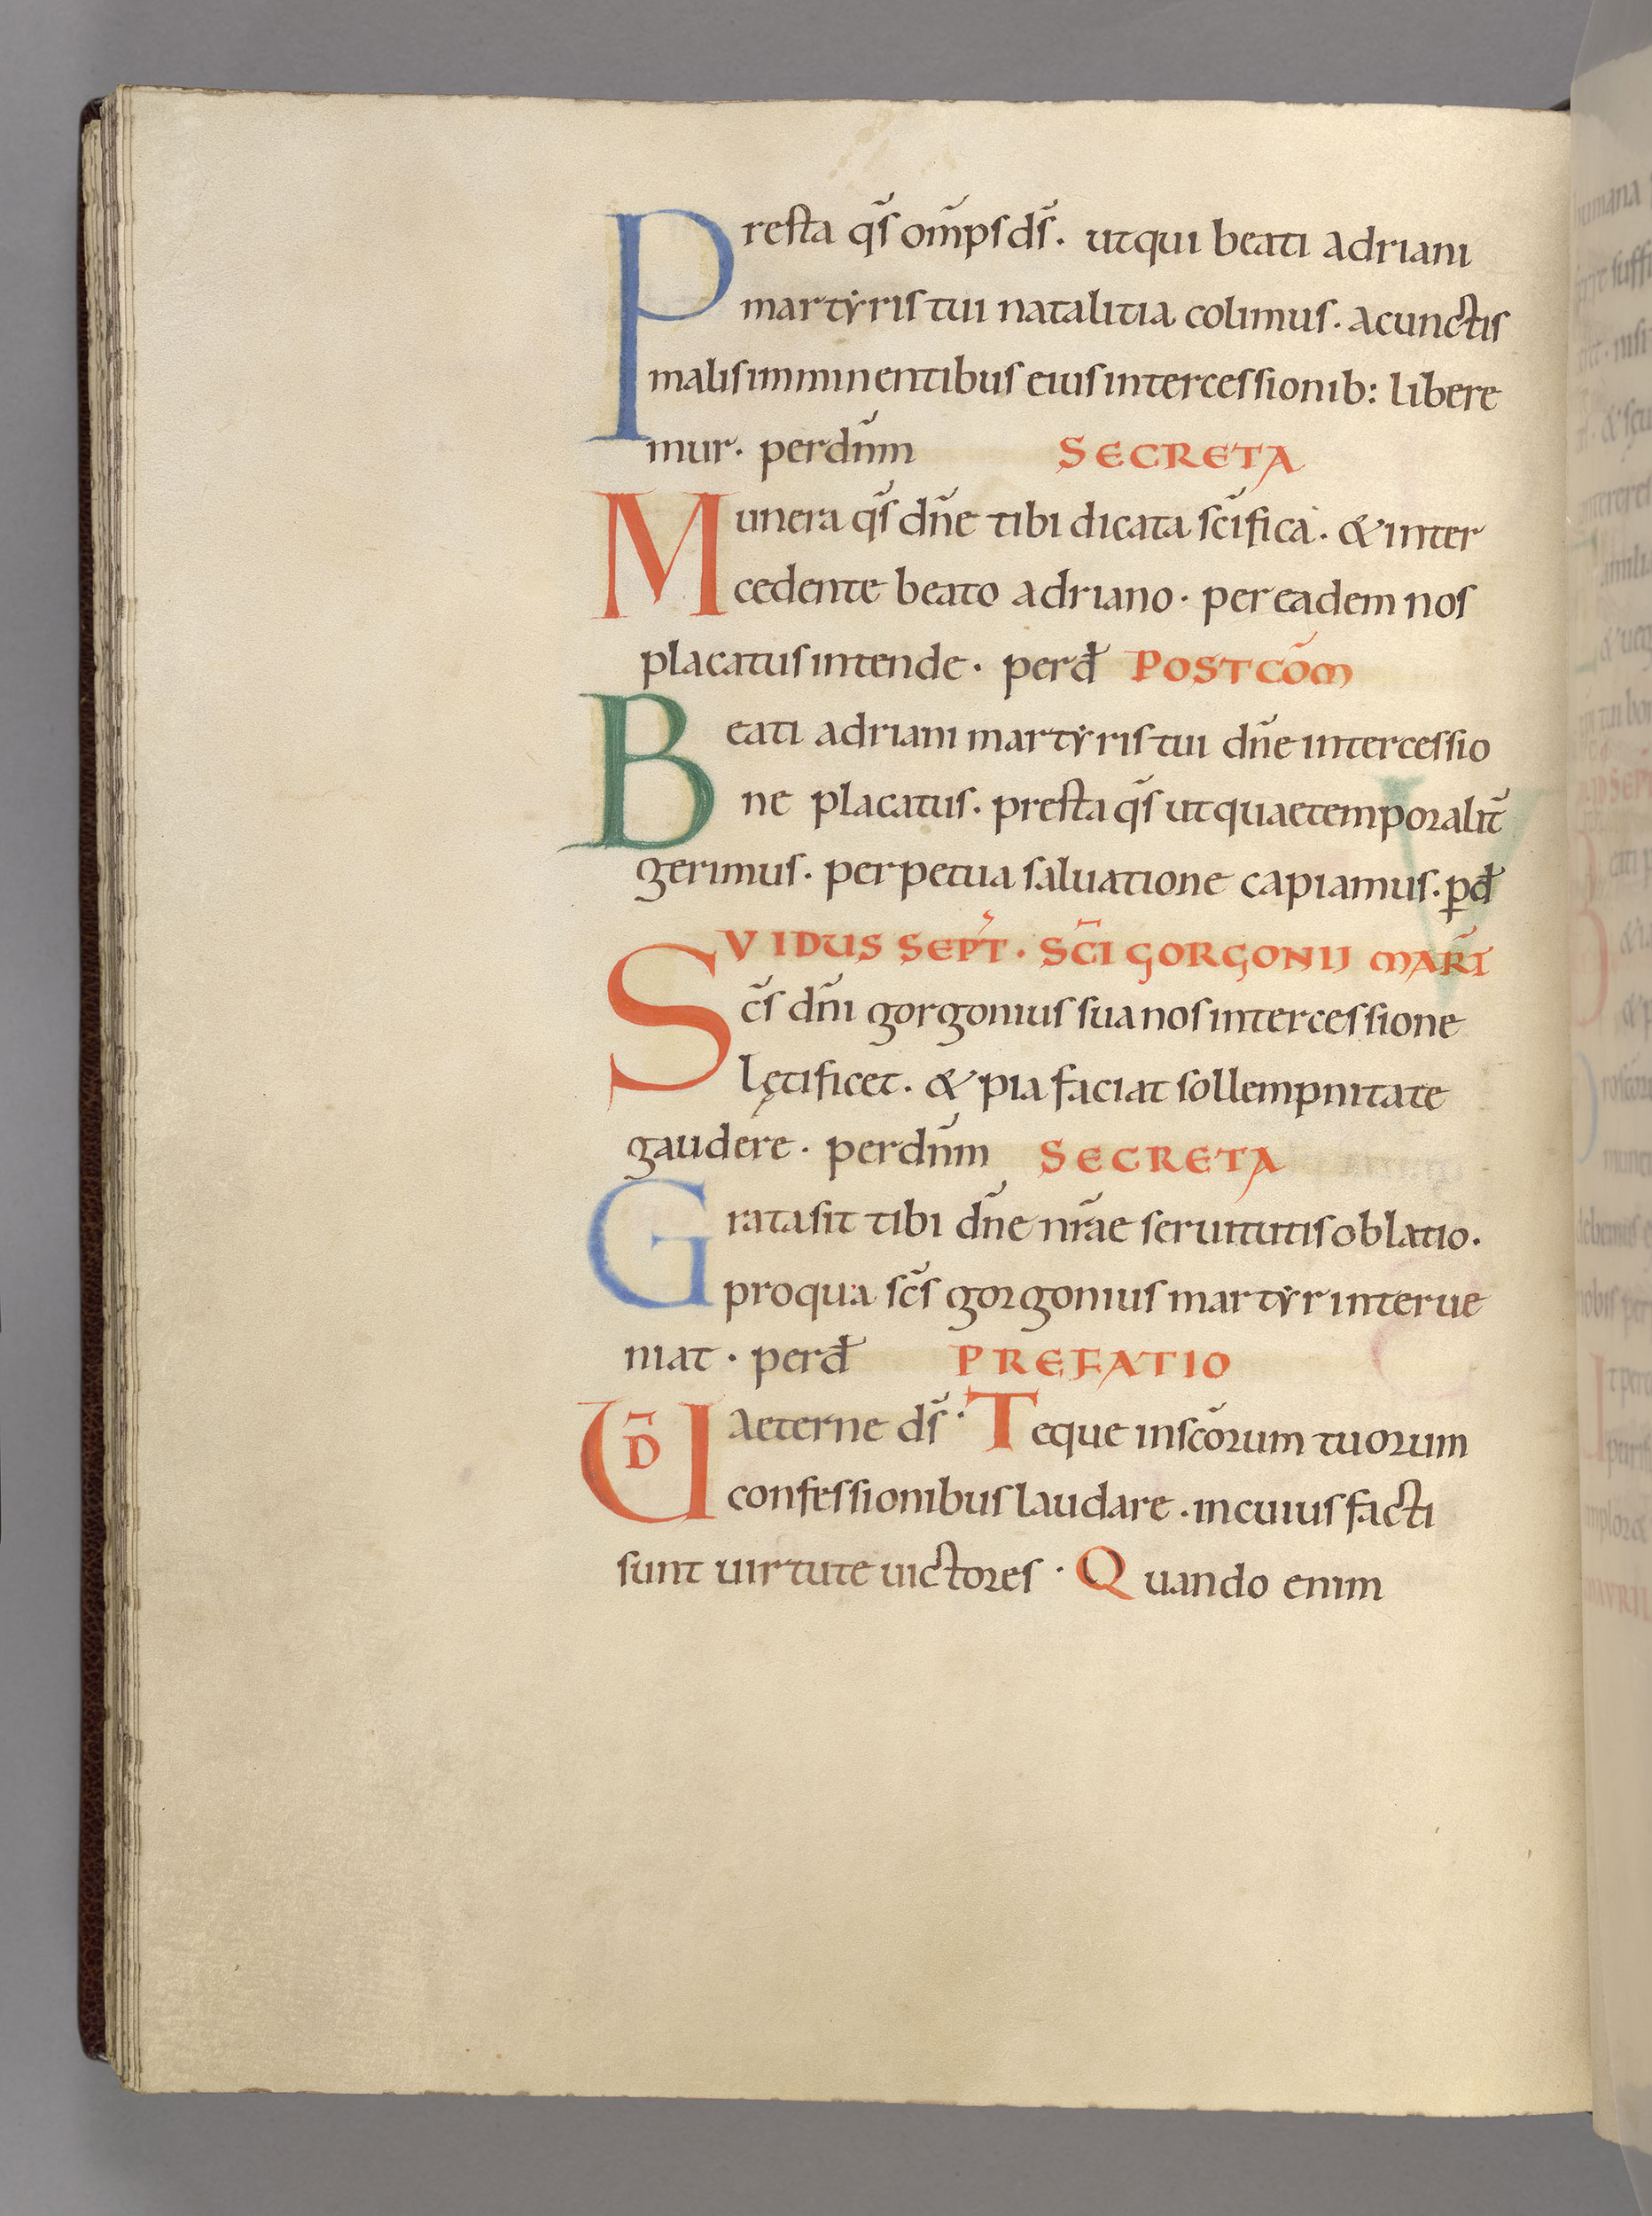 Presta q̄s om̄ps d̄s. ut qui beati adriani
martẏris tui natalitia colimus. a cunctis
malis imminentibus eius intercessionib: libere
mur. per dn̄m SECRETA
Munera q̄s dn̄e tibi dicata sc̄ifica. & inter
cedente beato adriano. per eadem nos
placatus intende. per đ POSTCŌM
Beati adriani martẏris tui dn̄e intercessio
ne placatus. presta q̄s ut quae temporalit̄
gerimus. perpetua saluatione capiamus. ꝑ đ
V IDUS SEPT̄. SC̄I GORGONIJ MAR̄T
Sc̄s dn̄i gorgonius sua nos intercessione
lętificet. & pia faciat sollempnitate
gaudere. per dn̄m SECRETA
Grata sit tibi dn̄e nr̄ae seruitutis oblatio.
pro qua sc̄s gorgonius martẏr interue
niat. per đ PREFATIO
UD̄ aeterne d̄s. Teque in sc̄orum tuorum
confessionibus laudare. in cuius facti
sunt uirtute uictores. Quando enim